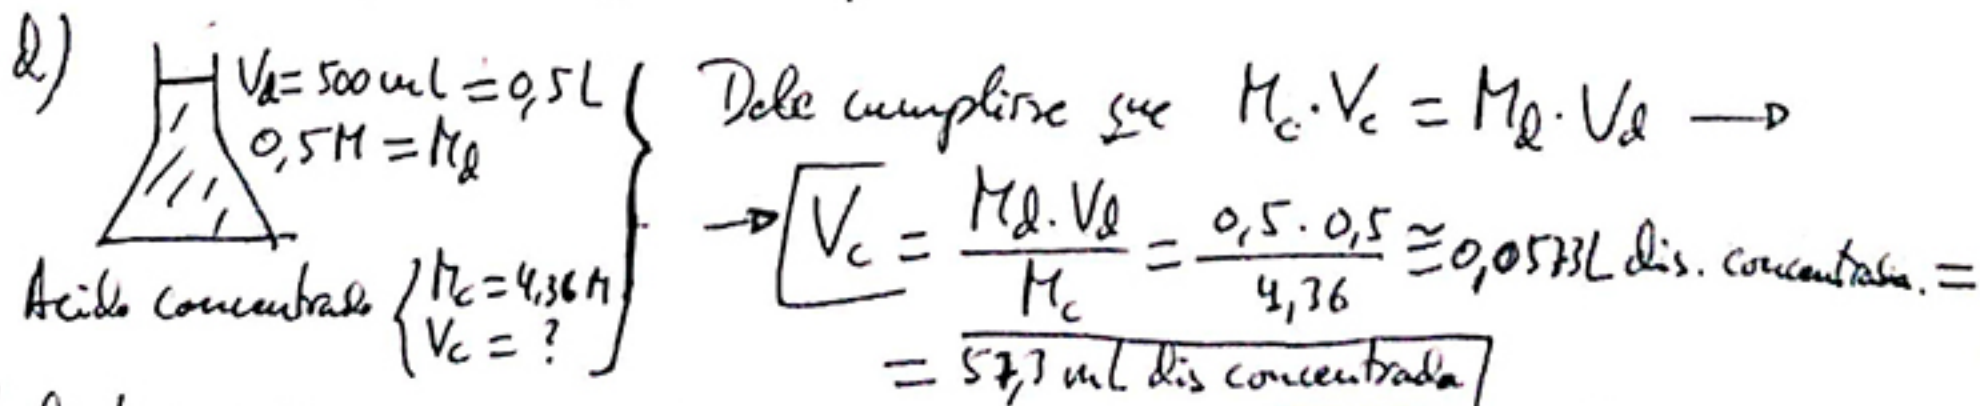 2) Vd = 500 ml = 0,5 L
0,5 M = Md
Acido concentrado { Mc = 4,36 M
Vc = ?
Debe cumplirse que Mc · Vc = Md · Vd →
→ Vc = Md · Vd / Mc = 0,5 · 0,5 / 4,36 ≅ 0,0573 L dis. concentrada. =
= 57,3 ml dis concentrada